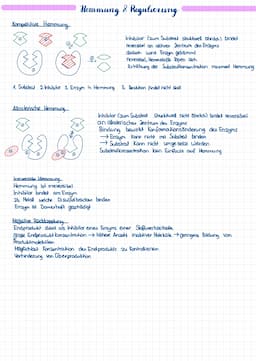 Hemmung & Regulierung
Kompetitive Hemmung
Inhibitor (zum Substrat strukturell ähnlich) bindet
reversibel an aktiver Zentrum des Enzyms
dadurch wird Enzym gehemmt
Erhöhung der Substratkonzentration minimiert Hemmung
1. Substrat 2. Inhibitor 3. Enzym 4. Hemmung 5. Reaktion findet nicht statt
Allosterische Hemmung
Inhibitor (zum Substrat strukturell nicht ähnlich) bindet reversibel
an allosterischer Zentrum des Enzyms
Bindung bewirkt Konformationsänderung des Enzyms
→ Enzym kann nicht mit Substrat binden
→ Substrat kann nicht umgesetzt werden
Substratkonzentration kein Einfluss auf Hemmung
Irreversible Hemmung
Hemmung ist irreversibel
Inhibitor bindet am Enzym
Enzym ist dauerhaft geschädigt
Negative Rückkopplung
Endprodukt dient als Inhibitor eines Enzyms einer Stoffwechselkette
Hohe Endproduktkonzentration → höhere Anzahl inaktiver Moleküle → geringere Bildung von
Produktmolekülen
Möglichkeit Konzentration des Endprodukts zu kontrollieren
Verhinderung von Überproduktion